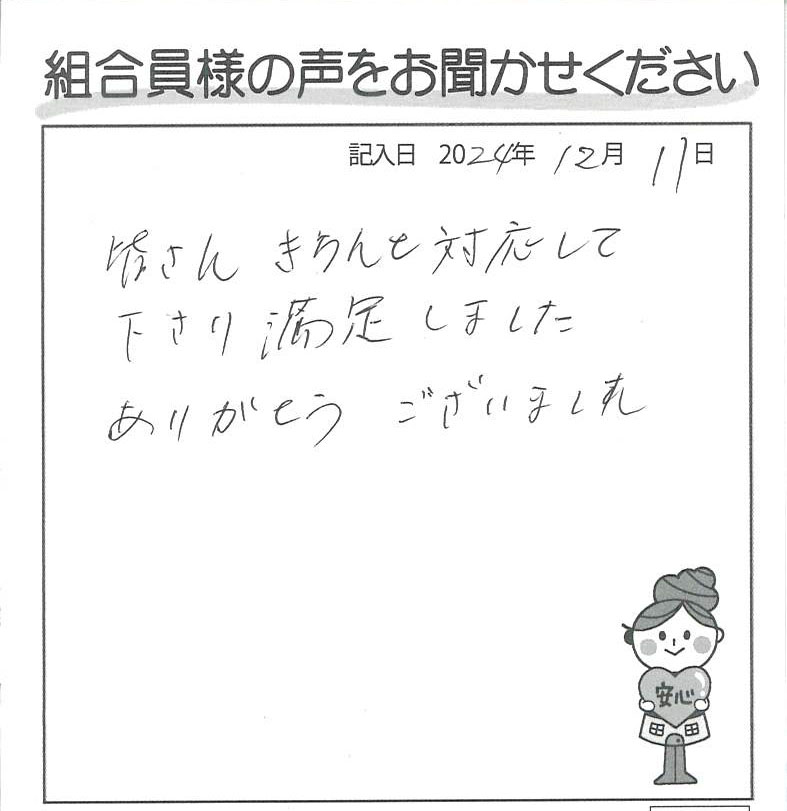 組合員様の声をお聞かせください
記入日 2024年 12月 11日
皆さん きちんと対応して
下さり 満足しました
ありがとう ございました
安心